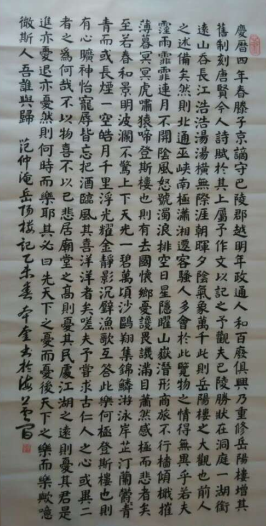 慶曆四年春滕子京謫守巴陵郡越明年政通人和百廢俱興乃重修岳陽樓增其
舊制刻唐賢今人詩賦於其上屬予作文以記之予觀夫巴陵勝狀在洞庭一湖銜
遠山吞長江浩浩湯湯橫無際涯朝暉夕陰氣象萬千此則岳陽樓之大觀也前人
之述備矣然則北通巫峽南極瀟湘遷客騷人多會於此覽物之情得無異乎若夫
霪雨霏霏連月不開陰風怒號濁浪排空日星隱曜山嶽潛形商旅不行檣傾楫摧
薄暮冥冥虎嘯猿啼登斯樓也則有去國懷鄉憂讒畏譏滿目蕭然感極而悲者矣
至若春和景明波瀾不驚上下天光一碧萬頃沙鷗翔集錦鱗游泳岸芷汀蘭鬱青
青而或長煙一空皓月千里浮光耀金靜影沉璧漁歌互答此樂何極登斯樓也則
有心曠神怡寵辱皆忘把酒臨風其喜洋洋者矣嗟夫予嘗求古仁人之心或異二
者之為何哉不以物喜不以己悲居廟堂之高則憂其民處江湖之遠則憂其君是
進亦憂退亦憂然則何時而樂耶其必曰先天下之憂而憂後天下之樂而樂歟噫
微斯人吾誰與歸 范仲淹岳陽樓記乙未春